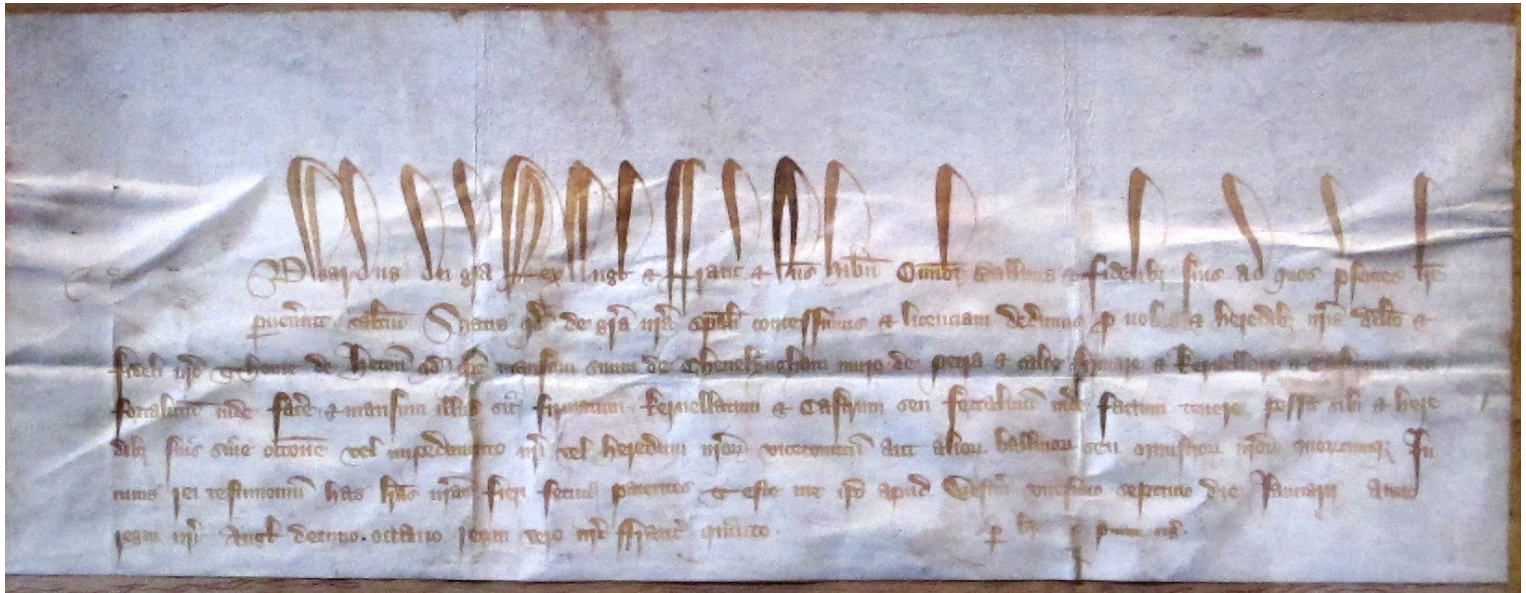 Edwardus dei gra Rex Angl & Franc & Dns Hibn Omibz Ballivis & fidelibz suis ad quos psentes lre
pvenint saltm Sciatis qd de gra nra speali concessimus & licenciam dedimus p nob & heredibz nris dilco &
fideli nro Thome de Heton qd ipse mansum suum de Chevelyngham muro de petra & calce firmare & kernellare & castrum seu
fortalitm inde facere & mansum illud sic firmatum kernellatum & Castrum seu fortalitm inde factum tenere possit sibi & here
dibz suis sine occone vel impedimento nri vel heredum nror vicecomitu aut alior ballivor seu ministror nror quorcumqz In
cuius rei testimoniu has lras nras fieri fecim patentes Teste me ipo apud Westm vicesimo septimo die Januarii anno
regni nri Angl decimo octavo regni vero nri ffranc quinto p bre